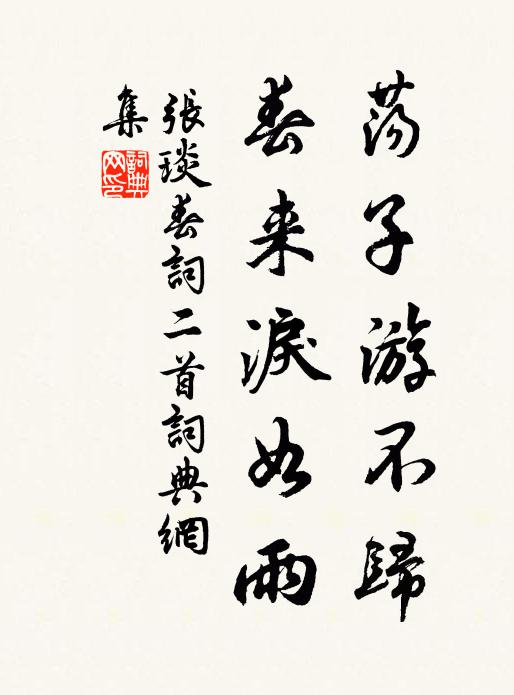 荡子游不歸
春来淚如雨
張琰春詞二首詞典網
集
詞典
网印